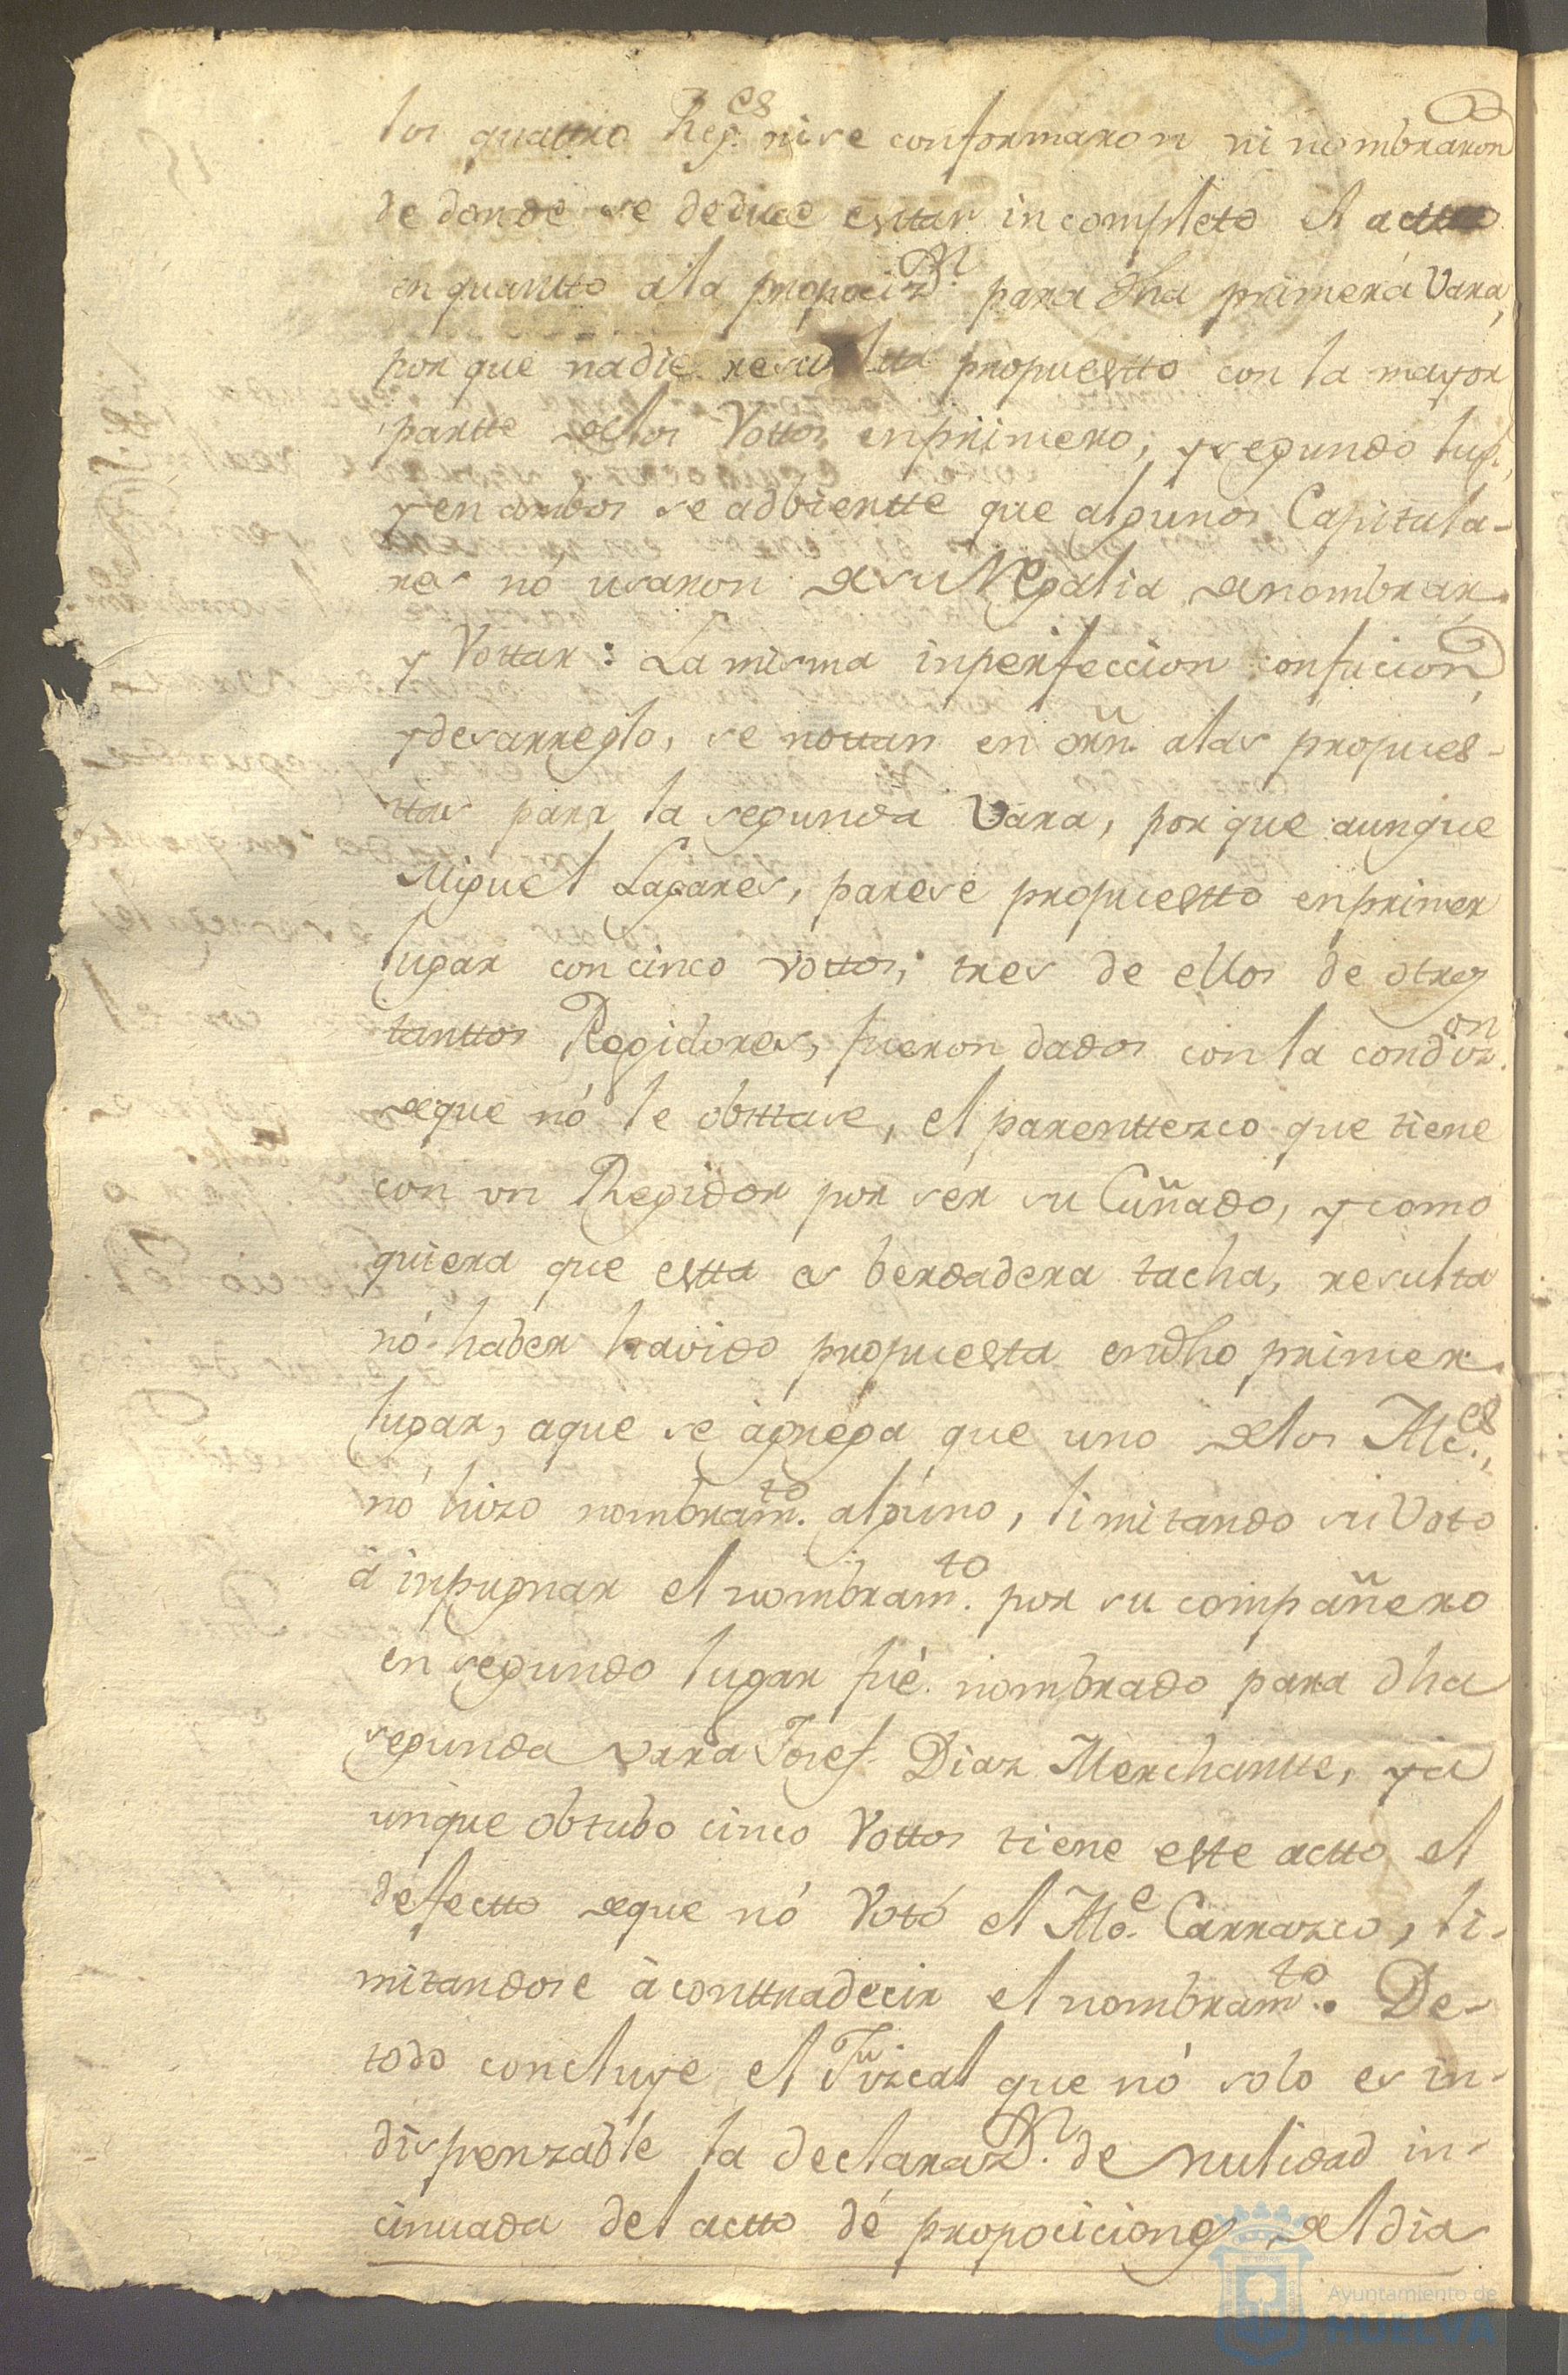 los quattro Reg.es ni se conformaron ni nombraron
de donde se deduce esttar incompleto el actto
en quantto a la propociz.on para dha primera Vara,
por que nadie resultta propuestto con la mayor
partte de los Vottos en primero, y segundo lug.,
y en ambos se adbiertte que algunos Capitula-
res nó usaron de su Regalia de nombrar
y Vottar: La misma inperfeccion confucion,
y desarreglo, se nottan en orñ. a las propues-
ttas para la segunda Vara, por que aunque
Miguel Lagares, parese propuestto en primer
lugar con cinco vottos, tres de ellos de otros
tanttos Regidores, fueron dados con la condiz.on
de que nó le obsttase, el parenttezco que tiene
con un Regidor por sér su Cuñado, y como
quiera que estta es berdadera tacha, resulta
nó haber havido propuesta en dho primer
lugar, a que se agrega que uno de los Alc.es,
nó hizo nombram.to algúno, limitando su Voto
á inpugnar el nombram.to por su compañero
en segundo lugar fué nombrado para dha
segunda vara Josef Diaz Merchantte, y a
unque obtubo cinco Vottos tiene este actto el
defectto de que nó Votó el Alc.e Carrazco, li-
mitandose à conttradecir el nombram.to. De
todo concluye el Fizcal que nó solo es in-
dispenzable la declaraz.on de nulidad in-
cinuada del actto dé propociciones del dia
Ayuntamiento de
HUELVA